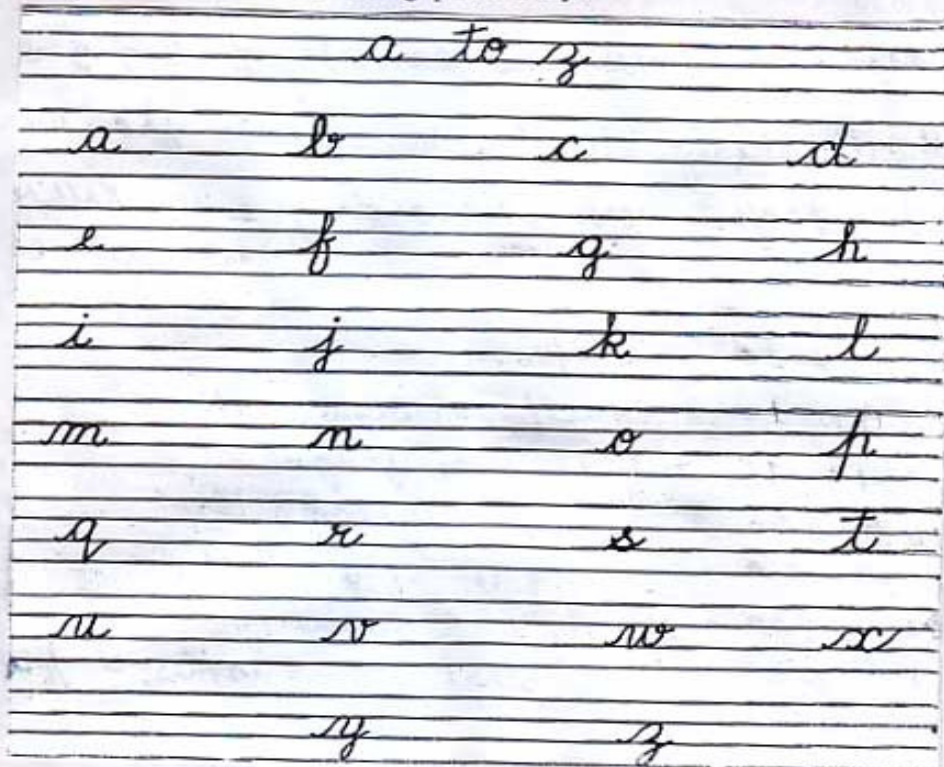 a to z
a b c d
e f g h
i j k l
m n o p
q r s t
u v w x
y z